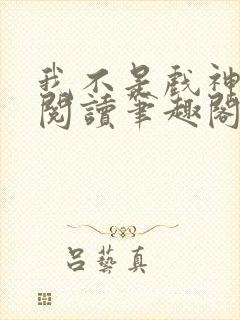 我不是戲神
閱讀筆趣閣
吕藝真